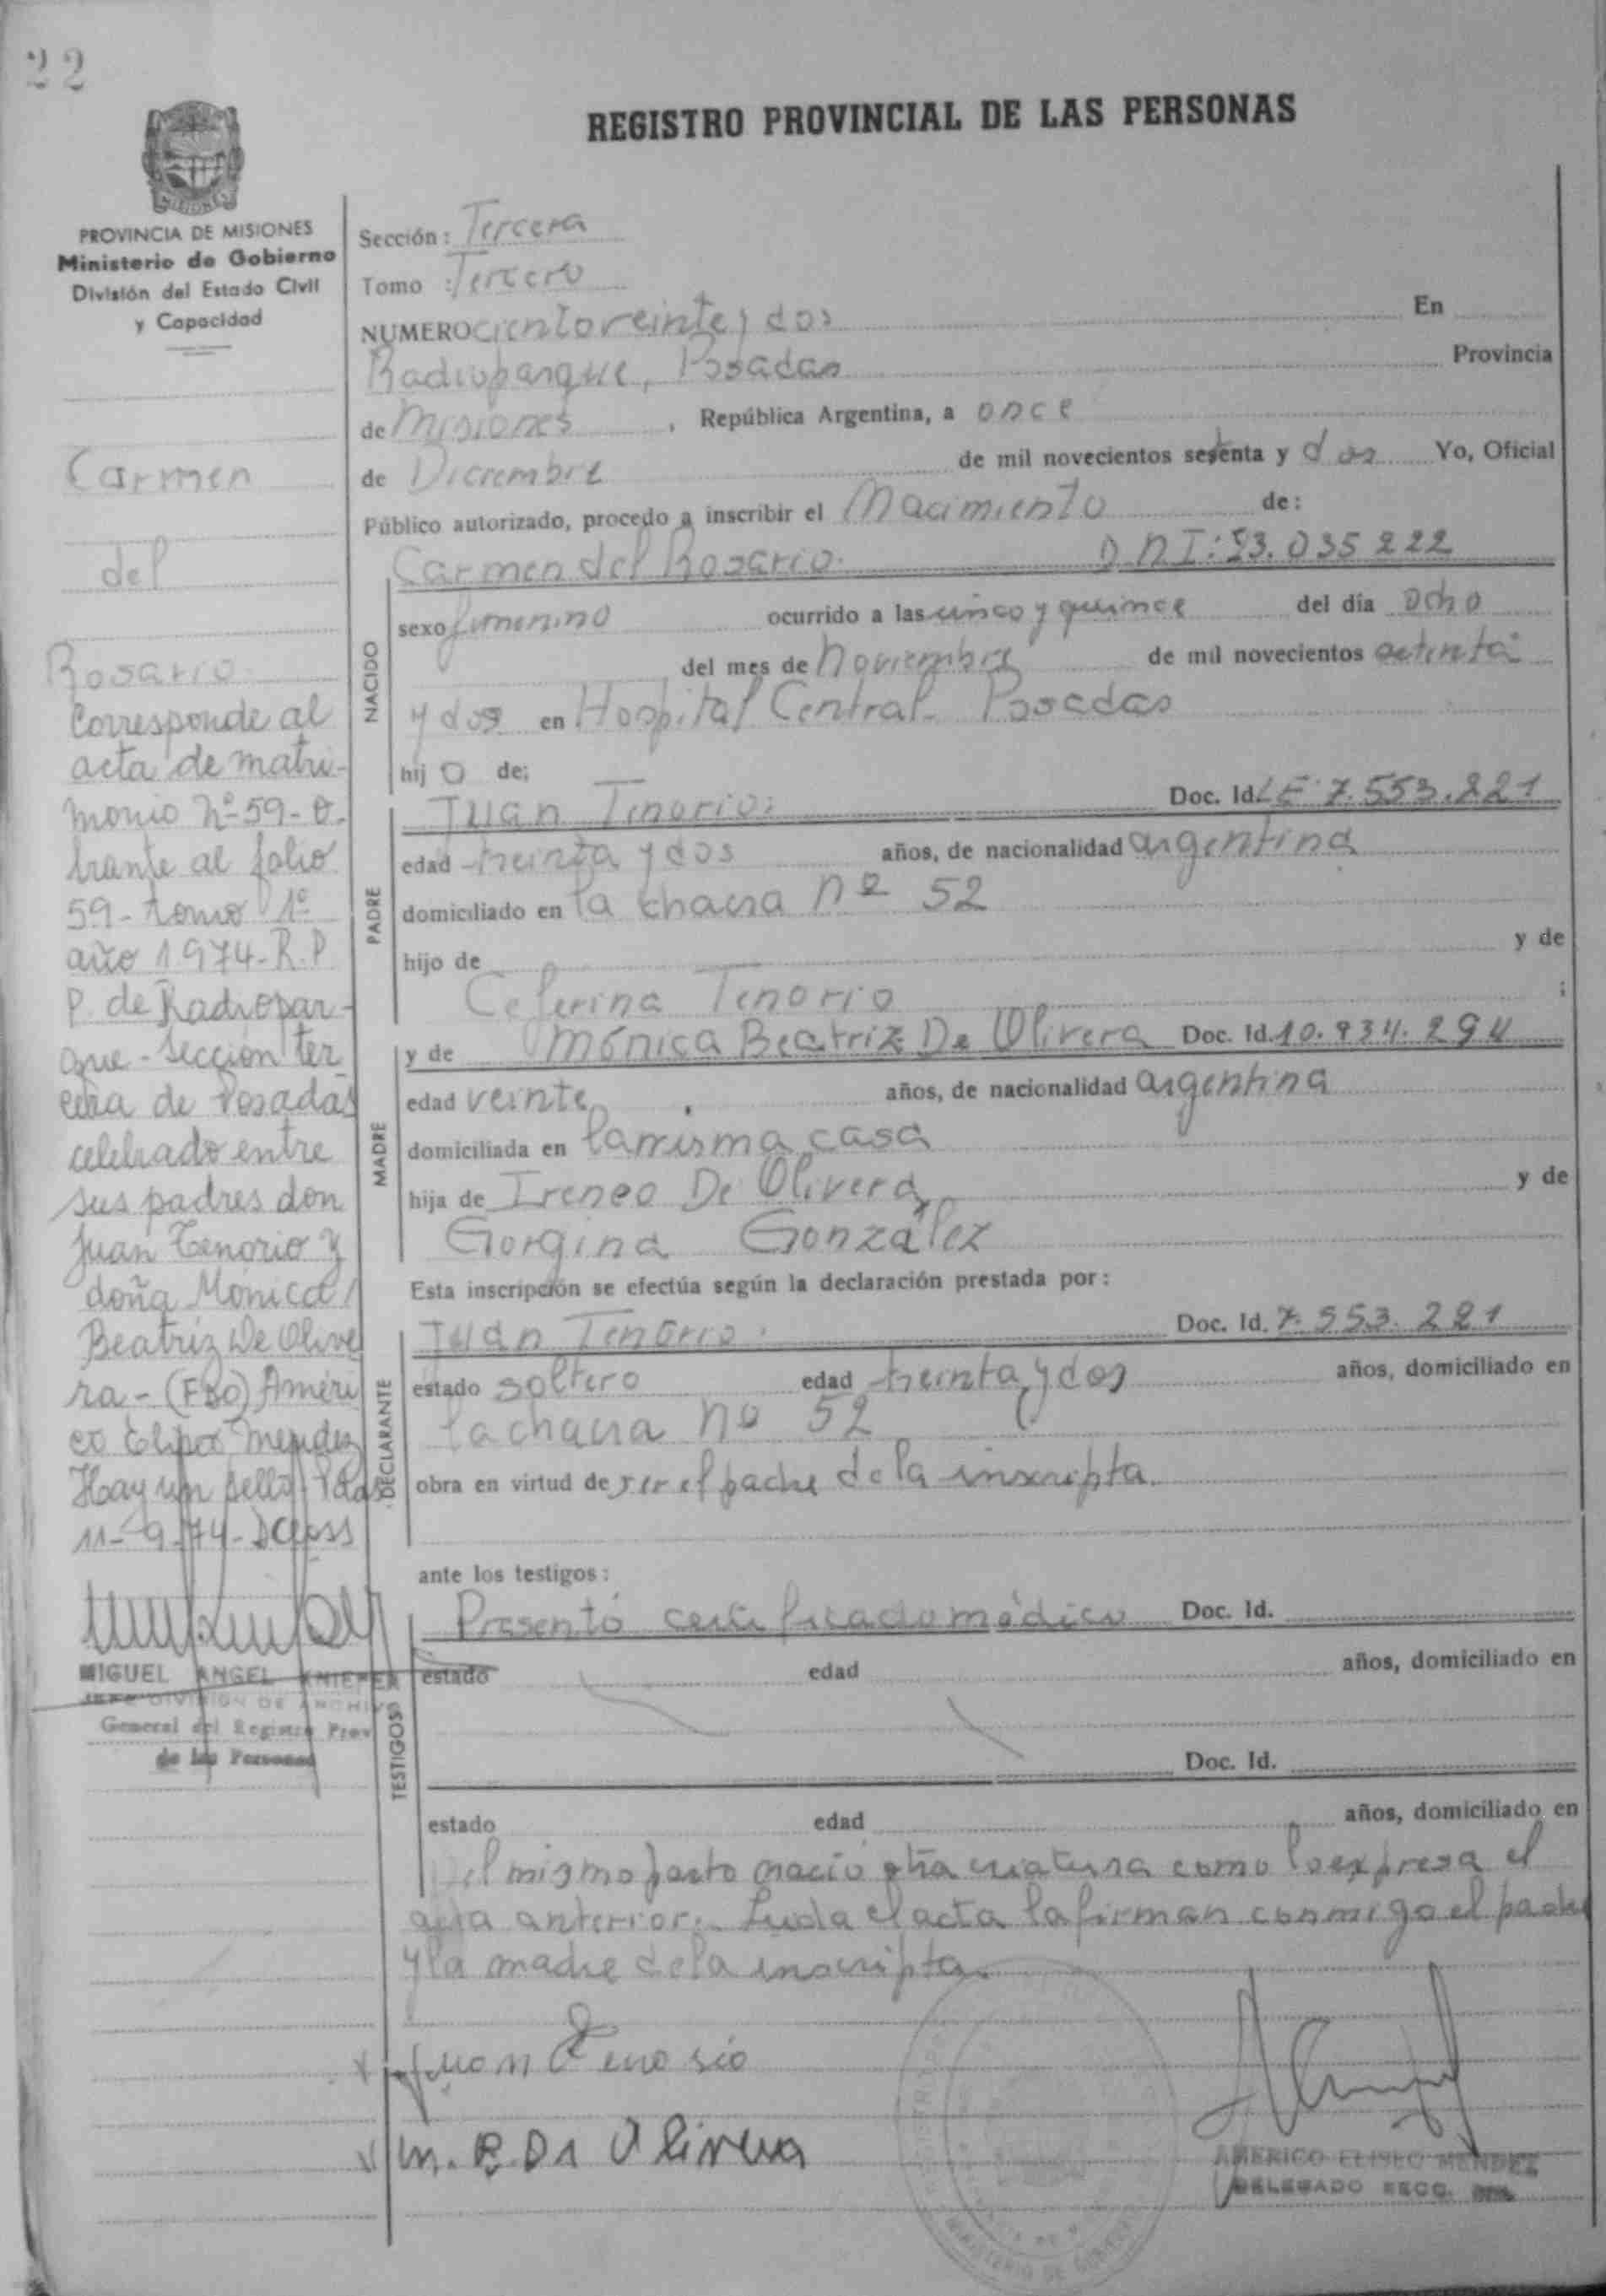 22
REGISTRO PROVINCIAL DE LAS PERSONAS
MISIONES
PROVINCIA DE MISIONES
Ministerio de Gobierno
División del Estado Civil
y Capacidad
Carmen
del
Rosario
Corresponde al
acta de matri-
monio Nº 59- o.
brante al folio
59- tomo 1º
año 1974- R.P
P. de Radiopar-
que- Sección ter
cera de Posadas
celebrado entre
sus padres don
Juan Tenorio y
doña Monica
Beatriz De Olive
ra- (FDO) Améri
co Eliseo Mendez
Hay un sello- Pdas
11- 9-74-
MIGUEL ANGEL
JEFE DIVISION DE ARCHIVO
General del Registro Prov
de las Personas
Sección: Tercera
Tomo : Tercero
NUMERO ciento veinte y dos En
Radioparque, Posadas Provincia
de Misiones , República Argentina, a once
de Diciembre de mil novecientos setenta y dos Yo, Oficial
Público autorizado, procedo a inscribir el Nacimiento de:
Carmen del Rosario. D.N.I: 23.035222
NACIDO
sexo femenino ocurrido a las cinco y quince del día ocho
del mes de Noviembre de mil novecientos setenta
y dos en Hospital Central- Posadas
hij o de:
PADRE
Juan Tenorio: Doc. Id. LE 7.553.221
edad treinta y dos años, de nacionalidad argentina
domiciliado en la chacra nº 52
hijo de y de
Ceferina Tenorio ;
MADRE
y de Mónica Beatriz De Olivera Doc. Id. 10.934.294
edad veinte años, de nacionalidad argentina
domiciliada en la misma casa
hija de Ireneo De Olivera y de
Gorgina González
Esta inscripción se efectúa según la declaración prestada por:
DECLARANTE
Juan Tenorio. Doc. Id. 7.553.221
estado soltero edad treinta y dos años, domiciliado en
la chacra no 52
obra en virtud de ser el padre de la inscripta.
ante los testigos:
TESTIGOS
Presentó certificado médico Doc. Id.
estado edad años, domiciliado en
Doc. Id.
estado edad años, domiciliado en
Del mismo parto nació otra criatura como lo expresa el
acta anterior. Leida el acta la firman conmigo el padre
y la madre de la inscripta.
x Juan Tenorio
x M. B. De Olivera
AMERICO ELISEO MENDEZ
DELEGADO SECC.
MINISTERIO DE GOBIERNO